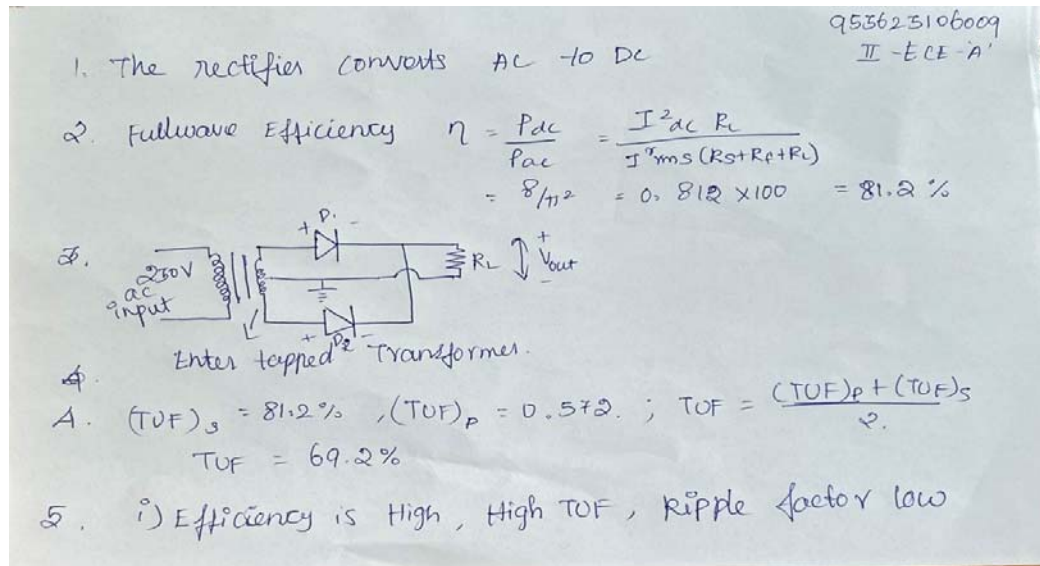 953623106009
II - ECE - A'
1. The rectifier converts AC to DC
2. Fullwave Efficiency η = Pdc / Pac = I²dc RL / I²rms (Rs+Rf+RL)
= 8/π² = 0.812 x100 = 81.2 %
3.
+ D1 -
230V
ac
input
RL
+
Vout
-
+ D2 -
Enter tapped Transformer.
4.
A. (TUF)s = 81.2% , (TUF)p = 0.572. ; TUF = (TUF)p + (TUF)s / 2.
TUF = 69.2%
5. i) Efficiency is High, High TUF, Ripple factor low